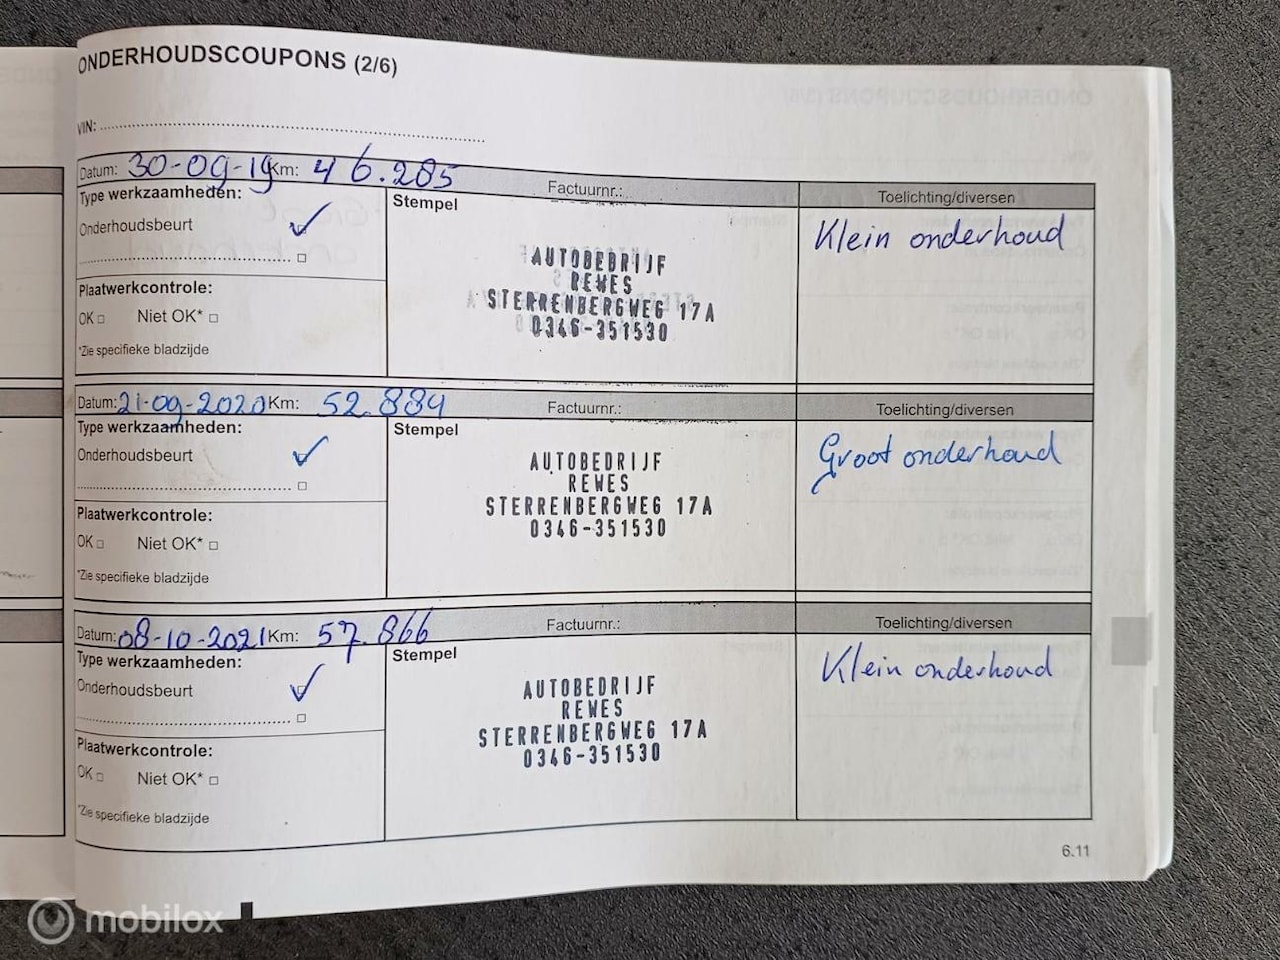 ONDERHOUDSCOUPONS (2/6)
VIN:
Datum: 30-09-19 Km: 46.285 Factuurnr.: Toelichting/diversen
Type werkzaamheden: Stempel
Onderhoudsbeurt Klein onderhoud
AUTOBEDRIJF
REWES
STERRENBERGWEG 17A
0346-351530
Plaatwerkcontrole:
OK Niet OK*
*Zie specifieke bladzijde
Datum: 21-09-2020 Km: 52.884 Factuurnr.: Toelichting/diversen
Type werkzaamheden: Stempel
Onderhoudsbeurt Groot onderhoud
AUTOBEDRIJF
REWES
STERRENBERGWEG 17A
0346-351530
Plaatwerkcontrole:
OK Niet OK*
*Zie specifieke bladzijde
Datum: 08-10-2021 Km: 57.866 Factuurnr.: Toelichting/diversen
Type werkzaamheden: Stempel
Onderhoudsbeurt Klein onderhoud
AUTOBEDRIJF
REWES
STERRENBERGWEG 17A
0346-351530
Plaatwerkcontrole:
OK Niet OK*
*Zie specifieke bladzijde
6.11
mobilox